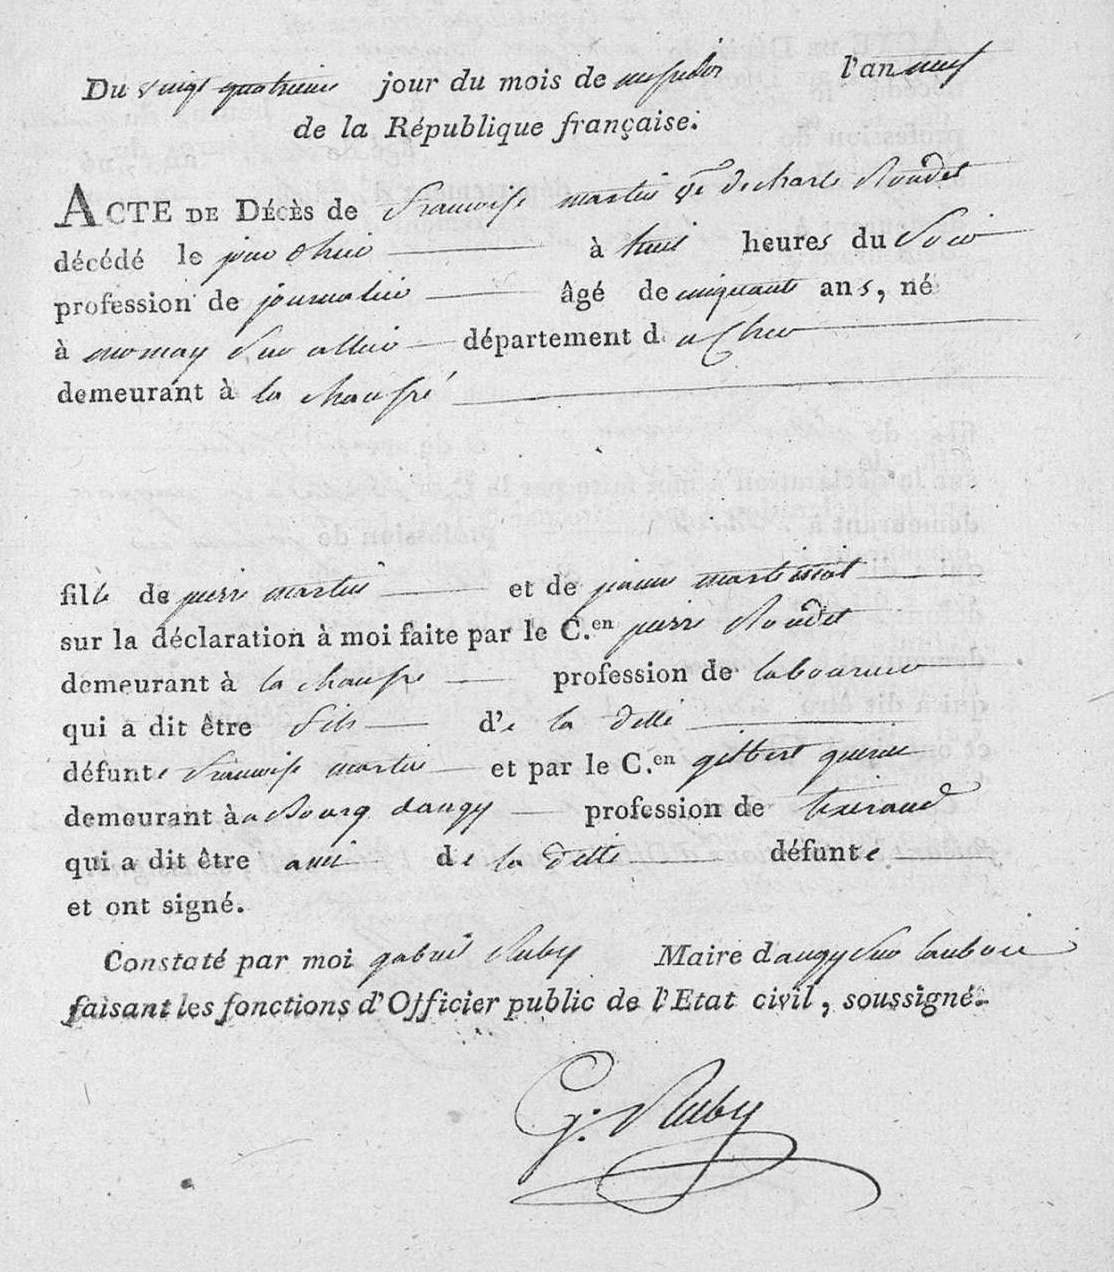 Du vingt quatrieme jour du mois de messidor l'an neuf
de la République française.
ACTE DE DÉCÈS de francoise martin ve de charle Roudet
décédé le jour dhui à huit heures du Soir
profession de journalier âgé de cinquante ans, né
à mornay Sur allier département du Cher
demeurant à la chaussé
fille de pierre martin et de jeanne
sur la déclaration à moi faite par le C.en pierre Roudet
demeurant à la chausse profession de laboureur
qui a dit être fils de la ditte
défunte francoise martin et par le C.en gilbert
demeurant à au Bourg daugy profession de tixerand
qui a dit être ami de la ditte défunte
et ont signé.
Constaté par moi gabriel Ruby Maire daugy Sur laubois
faisant les fonctions d'Officier public de l'Etat civil, soussigné.
G. Ruby